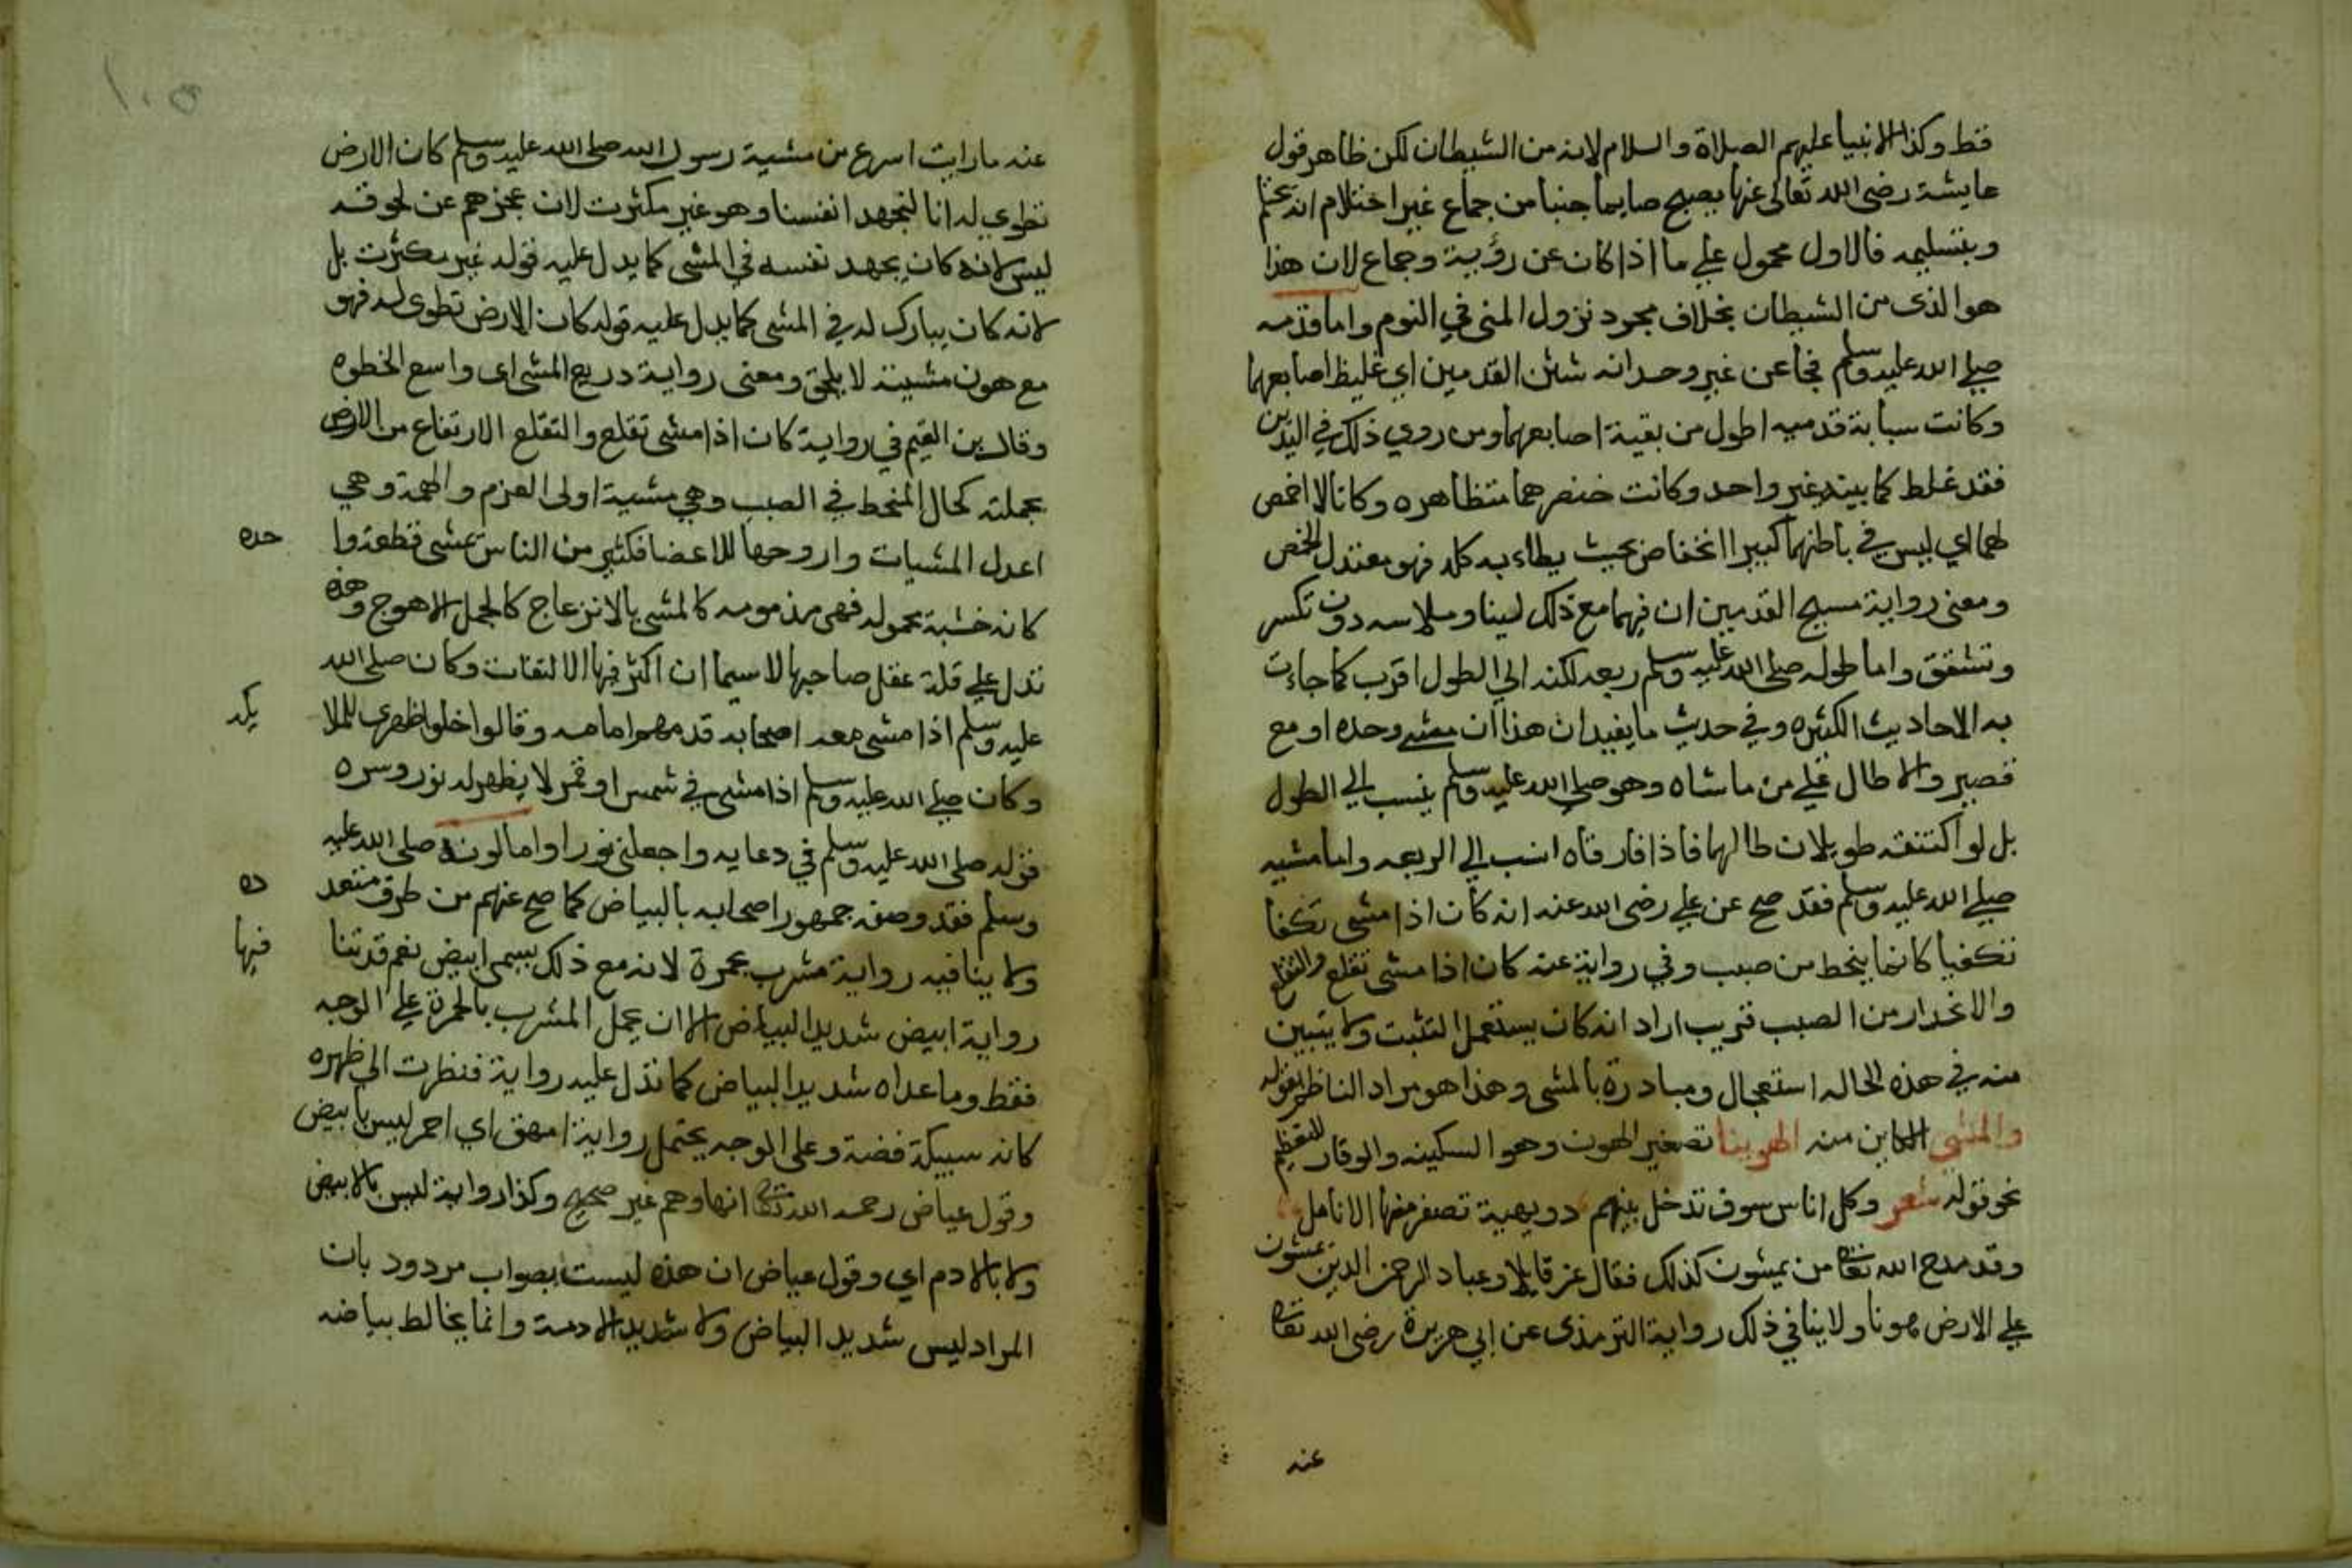 قط وكذا الانبيا عليهم الصلاة والسلام لانه من الشيطان لكن ظاهر قول
عايشة رضى الله تعالى عنها يصبح صايما جنبا من جماع غير احتلام انه يحتلم
وبتسليمه فالاول محمول علي ما اذا كان عن رؤية وجماع لان هذا
هو الذى من الشيطان بخلاف مجرد نزول المنى في النوم واما قدمه
صلي الله عليه وسلم فجا عن غير وحد انه شثن القدمين اي غليظ اصابعهما
وكانت سبابة قدميه اطول من بقية اصابعهما ومن روي ذلك في اليدين
فقد غلط كما بينه غير واحد وكانت خنصرهما متظاهره وكانا لا اخمص
لهما اي ليس في باطنهما كبير انخفاض بحيث يطاء به كله فهو معتدل الخمص
ومعنى رواية مسيح القدمين ان فيهما مع ذلك لينا وملاسه دون تكسر
وتشقق واما طوله صلى الله عليه وسلم ربعه لكنه الي الطول اقرب كما جاءت
به الاحاديث الكثيره وفي حديث ما يفيد ان هذا ان مشي وحده او مع
قصير والا طال علي من ماشاه وهو صلي الله عليه وسلم ينسب الي الطول
بل لو اكتنفه طويلان طالهما فاذا فارقاه انسب الي الربعه واما مشيه
صلي الله عليه وسلم فقد صح عن علي رضى الله عنه انه كان اذا مشى تكفا
تكفيا كانما ينحط من صبب وفي رواية عنه كان اذا مشى تقلع والتقلع
والانحدار من الصبب قريب اراد انه كان يستعمل التثبت ولا يتبين
منه في هذه الحاله استعجال ومبادرة بالمشى وهذا هو مراد الناظم بقوله
والمشى الكاين منه الهوينا تصغير الهون وهو السكينه والوقار للتعظيم
نحو قوله شعر وكل اناس سوف تدخل بينهم دويهية تصفر منها الانامل
وقد مدح الله تعالى من يمشون كذلك فقال عز قايلا وعباد الرحمن الذين يمشون
علي الارض هونا ولا ينافي ذلك رواية الترمذى عن ابي هريرة رضى الله تعالى
عنه
١٠٥
عنه ما رايت اسرع من مشية رسول الله صلى الله عليه وسلم كان الارض
تطوي له انا لنجهد انفسنا وهو غير مكترث لان عجزهم عن لحوقه
ليس لانه كان يجهد نفسه في المشى كما يدل عليه قوله غير مكترث بل
لانه كان يبارك له في المشى كما يدل عليه قوله كان الارض تطوى له فهو
مع هون مشيته لا يلحق ومعنى رواية دريع المشى اى واسع الخطوه
وقال بن القيم في رواية كان اذا مشى تقلع والتقلع الارتفاع من الارض
بجملته كحال المنحط في الصبب وهي مشية اولى العزم والهمة وهي
اعدل المشيات واروحها للاعضا فكثير من الناس يمشى قطعة وا
حده
كانه خشبة محموله فهى مذمومه كالمشى بالانزعاج كالجمل الاهوج وهذه
تدل علي قلة عقل صاحبها لا سيما ان اكثر فيها الالتفات وكان صلى الله
عليه وسلم اذا مشى معه اصحابه قدمهم امامه وقالوا خلوا ظهرى للملا
يكه
وكان صلي الله عليه وسلم اذا مشى في شمس او قمر لا يظهر له نور وسره
قوله صلى الله عليه وسلم في دعايه واجعلنى نورا واما لونه صلى الله عليه
وسلم فقد وصفه جمهور اصحابه بالبياض كما صح عنهم من طرق متعد
ده
ولا ينافيه رواية مشرب بحمرة لانه مع ذلك يسمى ابيض نعم قد ينا
فيها
رواية ابيض شديد البياض الا ان يحمل المشرب بالحمرة علي الوجه
فقط وما عداه شديد البياض كما تدل عليه رواية فنظرت الى ظهره
كانه سبيكة فضة وعلى الوجه يحتمل رواية امهق اي احمر ليس بابيض
وقول عياض رحمه الله تعالى انها وهم غير صحيح وكذا رواية ليس بالابيض
ولا بالادم اي وقول عياض ان هذه ليست بصواب مردود بان
المراد ليس شديد البياض ولا شديد الادمة وانما يخالط بياضه